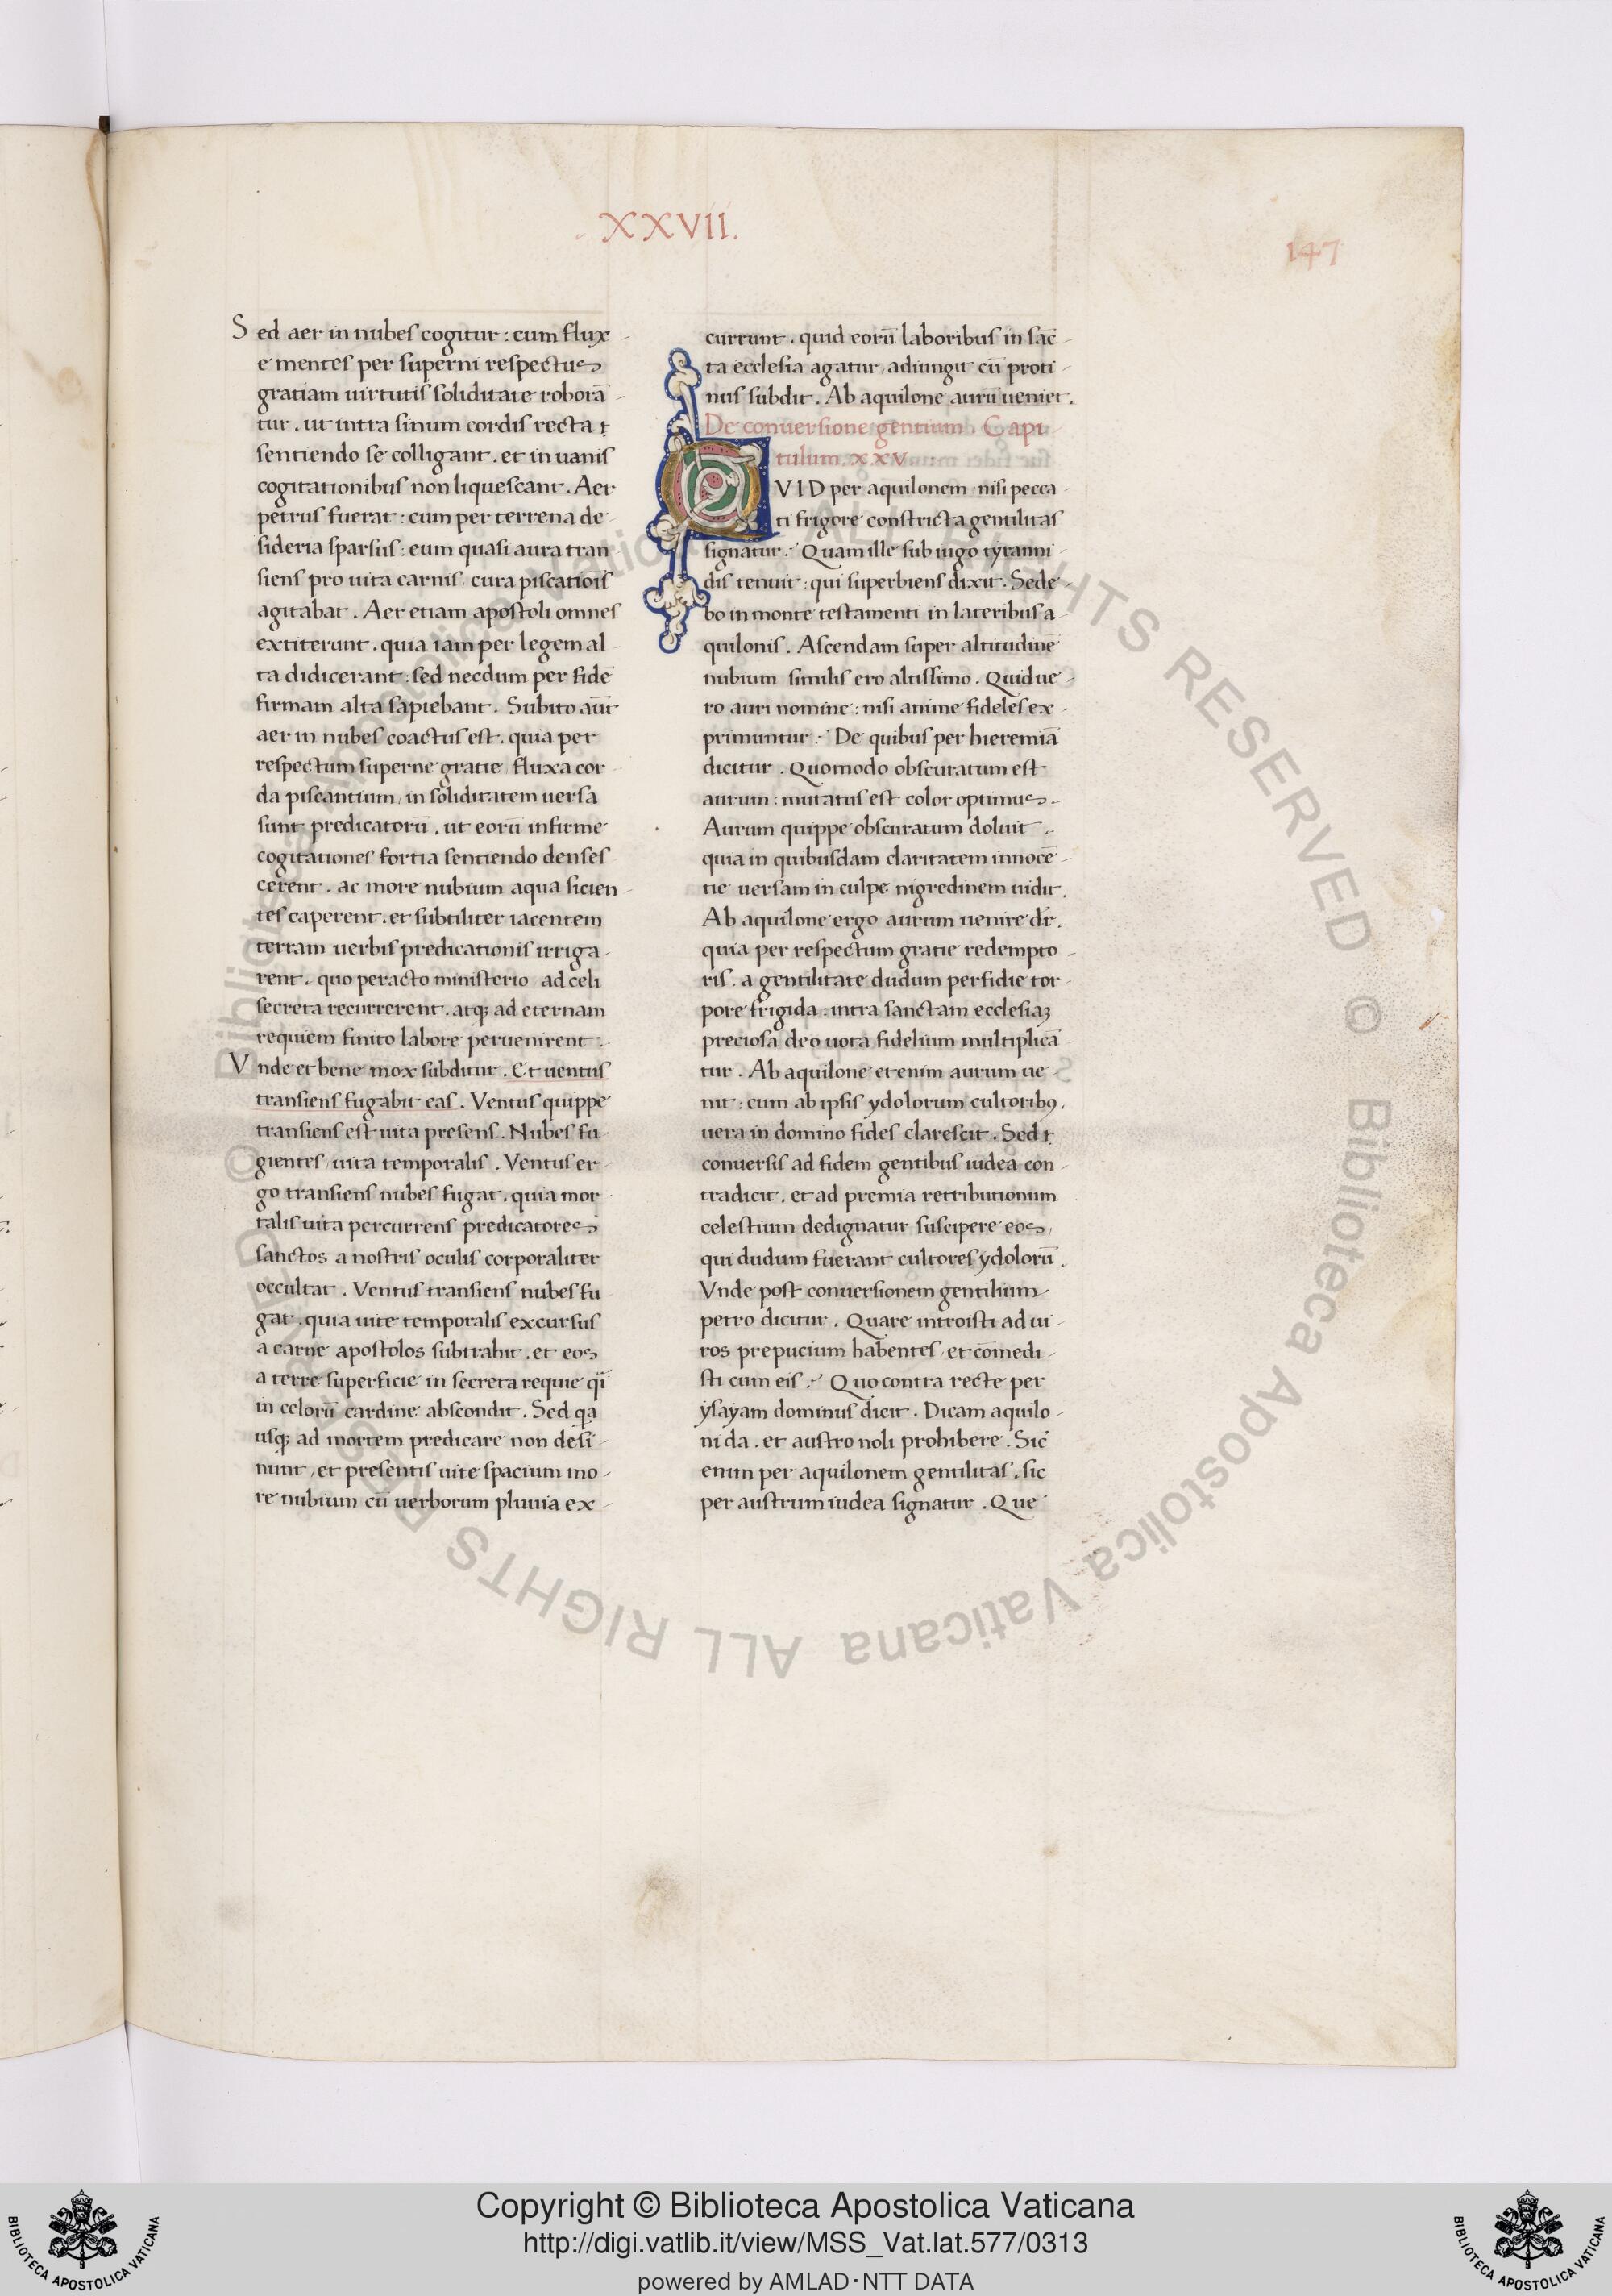 XXVII.
147
Sed aer in nubes cogitur : cum flux-
e mentes per superni respectus
gratiam uirtutis soliditate roborā-
tur . ut intra sinum cordis recta ⁊
sentiendo se colligant . et in uanis
cogitationibus non liquescant . Aer
petrus fuerat : cum per terrena de-
sideria sparsus : eum quasi aura tran-
siens pro uita carnis / cura piscatiōis
agitabat . Aer etiam apostoli omnes
extiterunt . quia iam per legem al-
ta didicerant : sed necdum per fidē
firmam alta sapiebant . Subito aūt
aer in nubes coactus est . quia per
respectum superne gratie / fluxa cor-
da piscantium / in soliditatem uersa
sunt predicatorū . ut eorū infirme
cogitationes fortia sentiendo denses-
cerent . ac more nubium aqua sicien-
tes caperent . et subtiliter iacentem
terram uerbis predicationis irriga-
rent . quo peracto ministerio / ad celi
secreta recurrerent . atq; ad eternam
requiem finito labore peruenirent .
Vnde et bene mox subditur . Et uentus
transiens fugabit eas . Ventus quippe
transiens est uita presens . Nubes fu-
gientes / uita temporalis . Ventus er-
go transiens nubes fugat . quia mor-
talis uita percurrens predicatores
sanctos a nostris oculis corporaliter
occultat . Ventus transiens nubes fu-
gat . quia uite temporalis excursus
a carne apostolos subtrahit . et eos
a terre superficie in secreta requie q̄i
in celorū cardine abscondit . Sed qa
usq; ad mortem predicare non desi-
nunt / et presentis uite spacium mo-
re nubium cū uerborum pluuia ex-
currunt . quid eorū laboribus in sāc-
ta ecclesia agatur / adiungit cū proti-
nus subdit . Ab aquilone aurū ueniet .
De conuersione gentium Capi
tulum . xxv
QVID per aquilonem nisi pecca-
ti frigore constricta gentilitas
signatur . Quam ille sub iugo tyranni-
dis tenuit : qui superbiens dixit . Sede-
bo in monte testamenti in lateribus a-
quilonis . Ascendam super altitudinē
nubium similis ero altissimo . Quid ue-
ro auri nomine : nisi anime fideles ex-
primuntur . De quibus per hieremiā
dicitur . Quomodo obscuratum est
aurum : mutatus est color optimus .
Aurum quippe obscuratum doluit .
quia in quibusdam claritatem innocē-
tie uersam in culpe nigredinem uidit .
Ab aquilone ergo aurum uenire dr̄ .
quia per respectum gratie redempto-
ris . a gentilitate dudum perfidie tor-
pore frigida : intra sanctam ecclesiaʒ
preciosa deo uota fidelium multiplicā-
tur . Ab aquilone et enim aurum ue-
nit : cum ab ipsis ydolorum cultoribꝰ .
uera in domino fides clarescit . Sed ⁊
conuersis ad fidem gentibus iudea con-
tradicit . et ad premia retributionum
celestium dedignatur suscipere eos /
qui dudum fuerant cultores ydolorū .
Vnde post conuersionem gentilium
petro dicitur . Quare introisti ad ui-
ros prepucium habentes / et cōmedi-
sti cum eis . Quo contra recte per
ysayam dominus dicit . Dicam aquilo-
ni da . et austro noli prohibere . Sic
enim per aquilonem gentilitas . sic
per austrum iudea signatur . Que
© Biblioteca Apostolica Vaticana ALL RIGHTS RESERVED
Copyright © Biblioteca Apostolica Vaticana
http://digi.vatlib.it/view/MSS_Vat.lat.577/0313
powered by AMLAD·NTT DATA
BIBLIOTECA APOSTOLICA VATICANA
BIBLIOTECA APOSTOLICA VATICANA